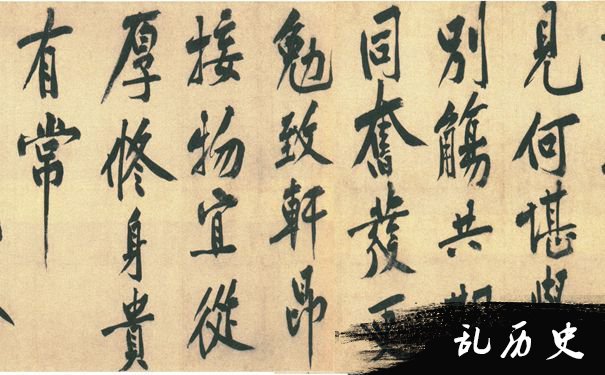 見何堪
別觴共期
同奮發更
勉致軒昂
接物宜從
厚修身貴
有常
乱历史